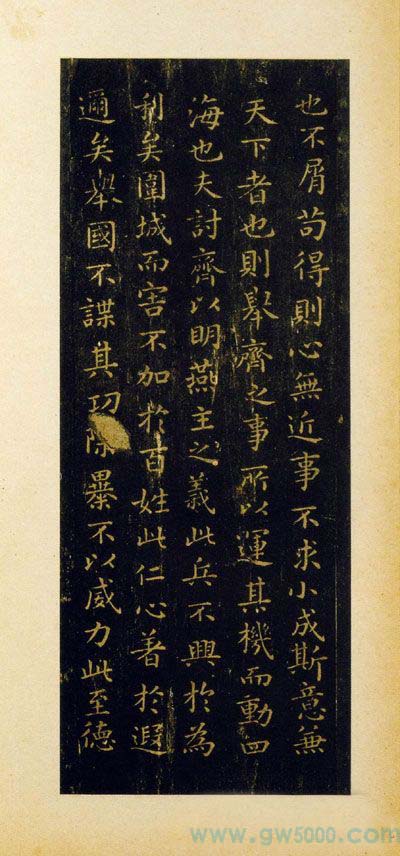 也不屑苟得則心無近事不求小成斯意兼
天下者也則舉齊之事所以運其機而動四
海也夫討齊以明燕主之義此兵不興於為
利矣圍城而害不加於百姓此仁心著於遐
邇矣舉國不謀其功除暴不以威力此至德
www.gw5000.com